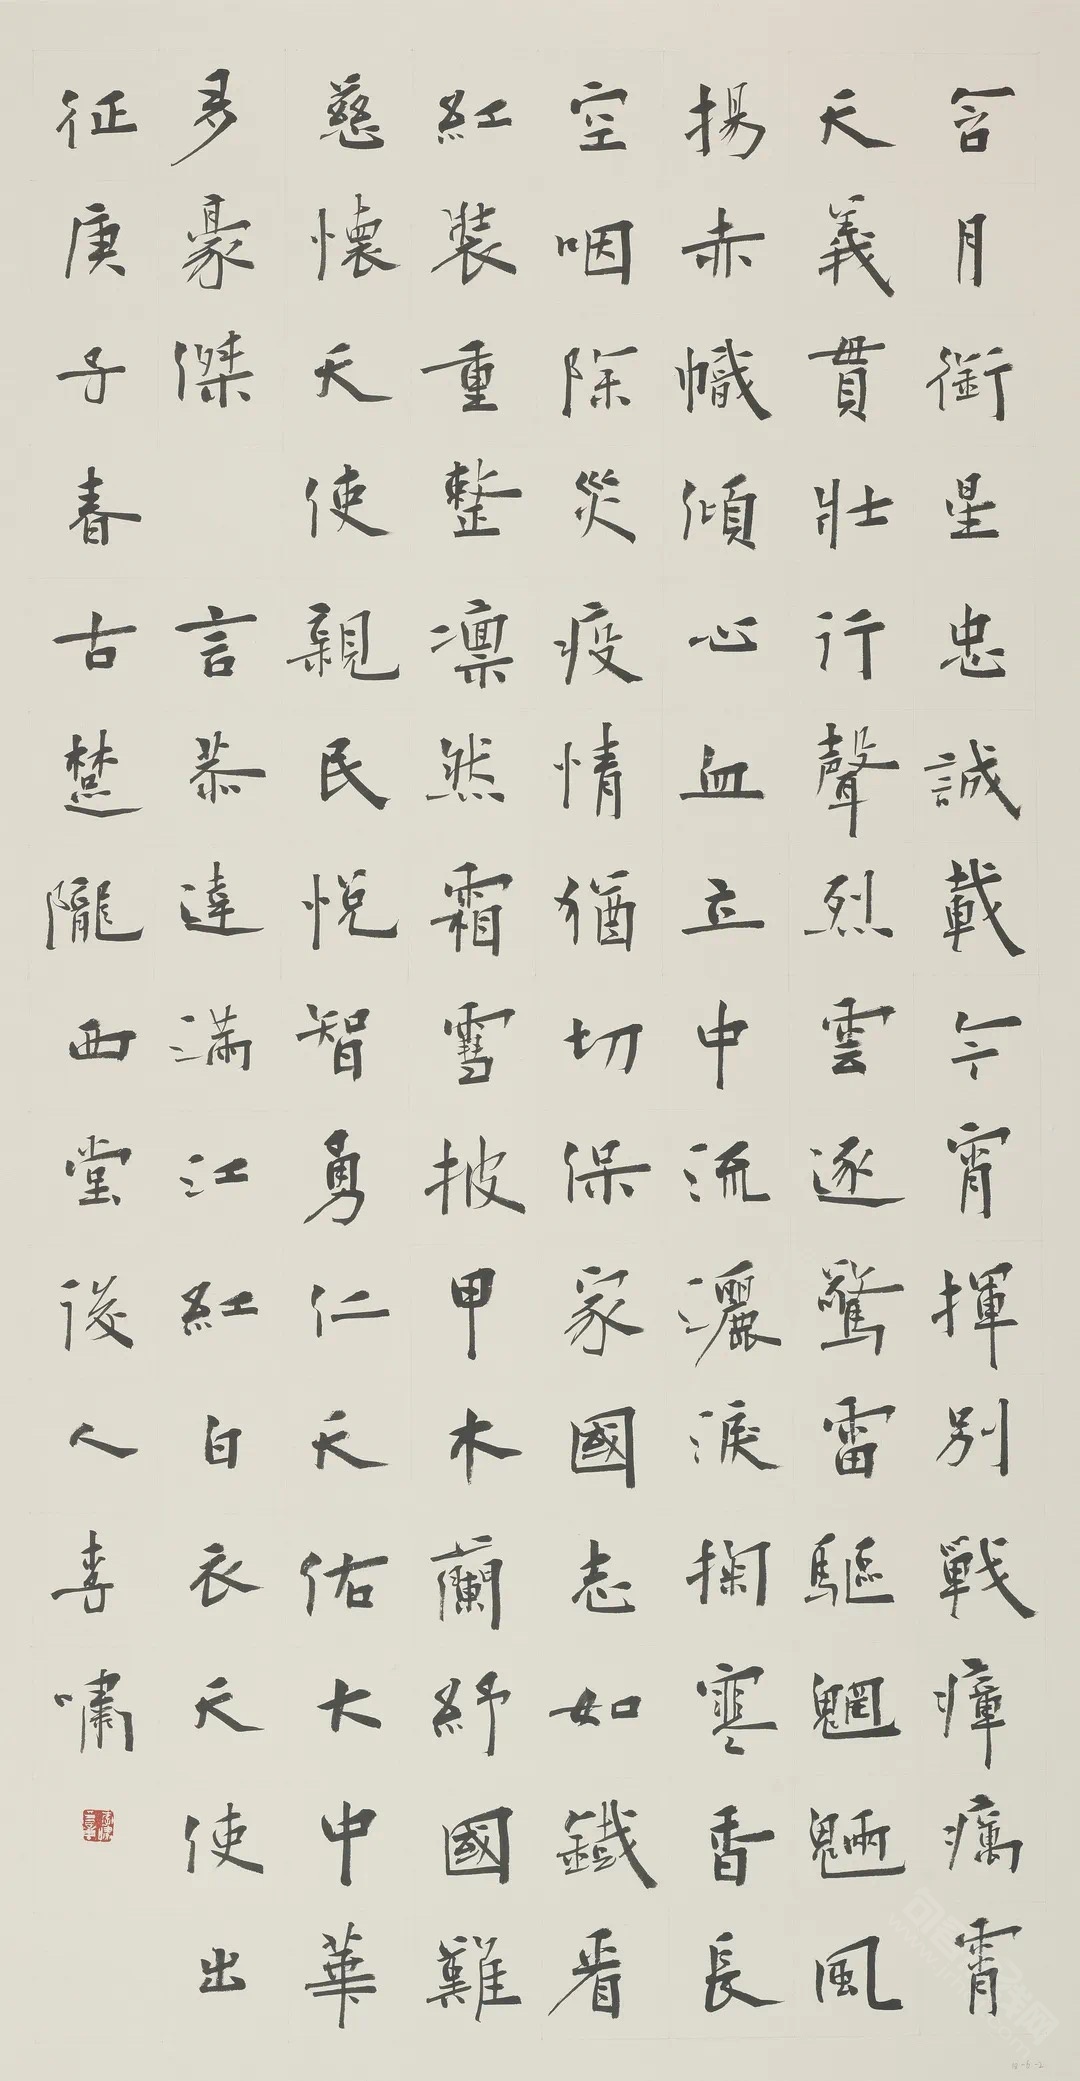 含月銜星忠誠載今宵揮別戰瘴癘霄
天義貫壯行聲烈雲逐驚雷驅魍魎風
揚赤幟傾心血立中流灑淚掬寒香長
空咽除災疫情猶切保家國志如鐵看
紅裝重整凛然霜雪披甲木蘭紓國難
慈懷天使親民悅智勇仁天佑大中華
多豪傑 言恭達滿江紅白衣天使出
征庚子春古楚隴西堂後人李嘯